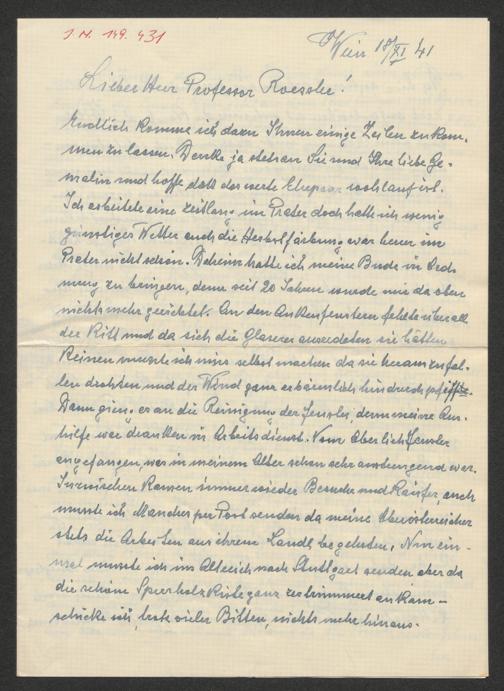 J.N. 149.431
Wien 18/XI 41
Lieber Herr Professor Roessler!
Endlich komme ich dazu Ihnen einige Zeilen zukom-
men zu lassen. Denke ja stets an Sie und Ihre liebe Ge-
malin und hoffe daß das werte Ehepaar wohlauf ist.
Ich arbeitete eine Zeitlang im Prater doch hatte ich wenig
günstiges Wetter auch die Herbstfärbung war heuer im
Prater nicht schön. Daheim hatte ich meine Bude in Ord-
nung zu bringen, denn seit 20 Jahren wurde mir da oben
nichts mehr gerichtet. An den Außenfenstern fehlte überall
der Kitt und da sich die Glaserer ausredeten sie hätten
keinen musste ich mir selbst machen da sie herauszufal-
len drohten und der Wind ganz erbärmlich hindurch pfiff
Dann gieng es an die Reinigung der Fenster, denn meine Aus-
hilfe war draußen in Arbeitsdienst. Nun
angefangen, was in meinem Alter schon sehr anstrengend war.
Inzwischen kamen immer wieder Besuche und Käufer, auch
musste ich Manches per Post senden da meine Oberösterreicher
stets die Arbeiten aus ihrem Landl begehrten. Nur ein-
mal musste ich ins Altreich nach Stuttgart senden aber da
die schöne Sperrholzkiste ganz zertrümmert ankam –
schicke ich, trotz vieler Bitten, nichts mehr hinaus.